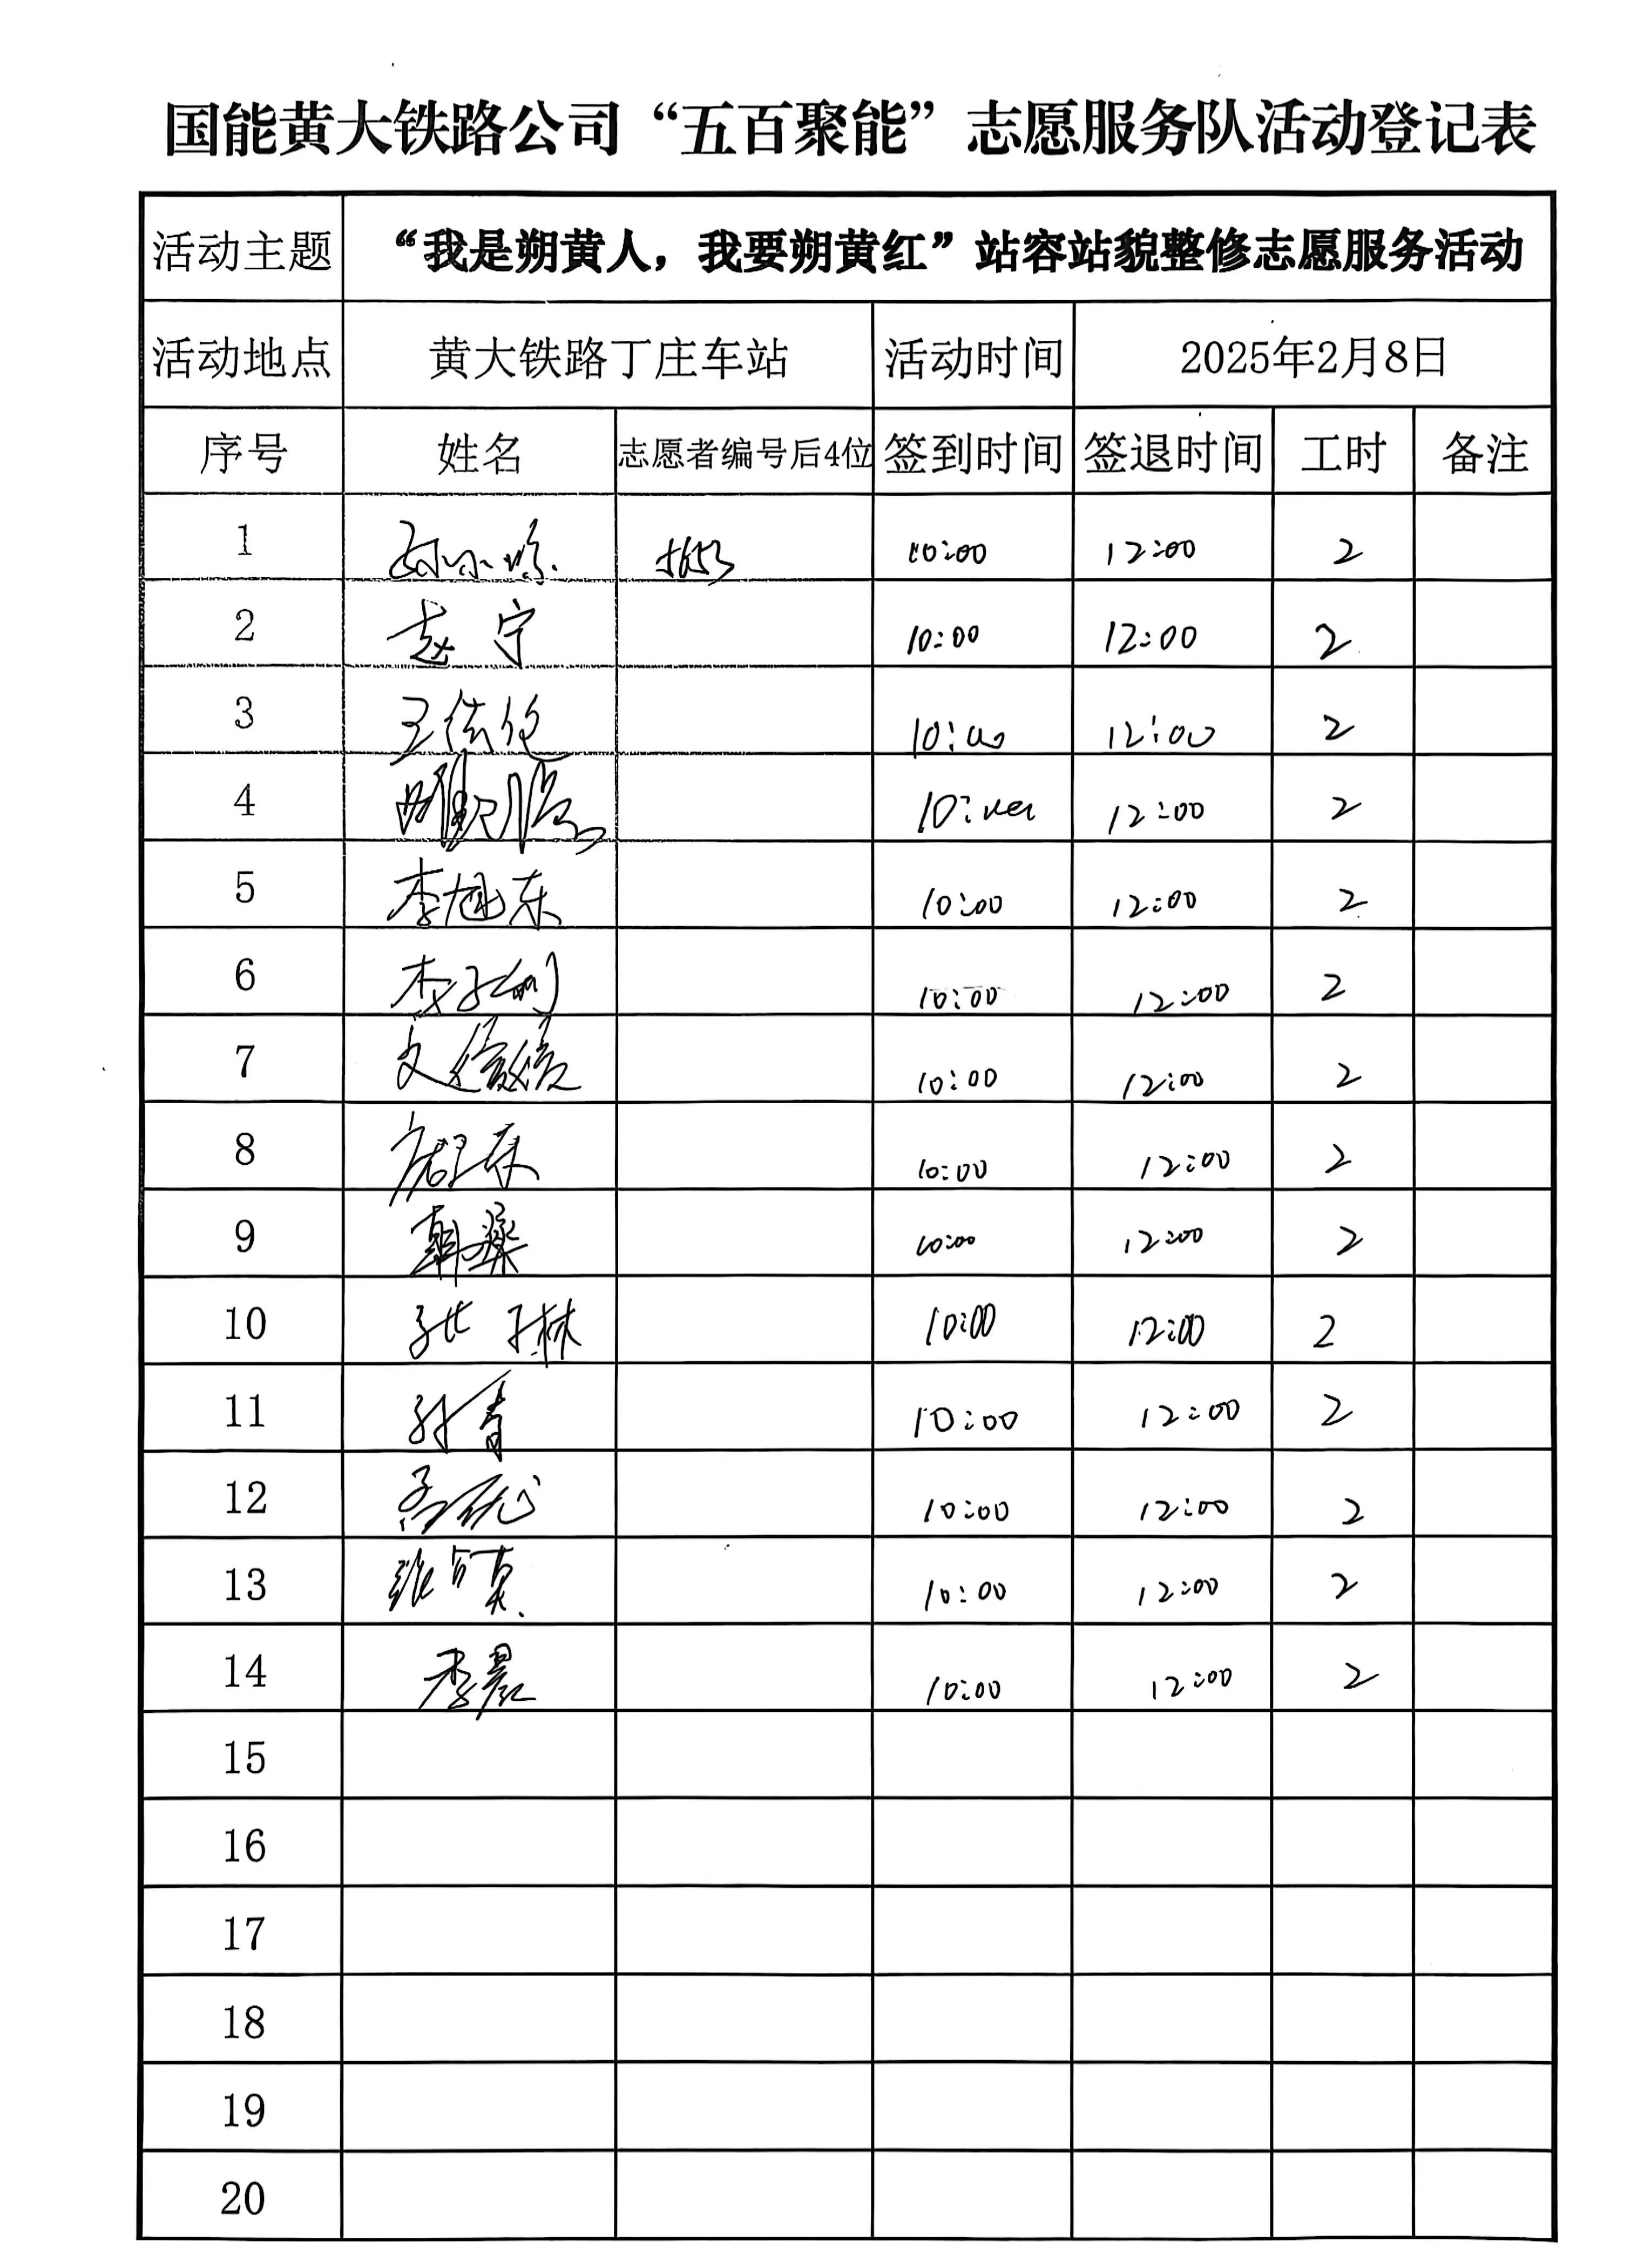 国能黄大铁路公司“五百聚能”志愿服务队活动登记表
活动主题 “我是朔黄人，我要朔黄红”站容站貌整修志愿服务活动
活动地点 黄大铁路丁庄车站 活动时间 2025年2月8日
序号 姓名 志愿者编号后4位 签到时间 签退时间 工时 备注
1 10:00 12:00 2
2 赵宁 10:00 12:00 2
3 10:00 12:00 2
4 12:00 2
5 李旭东 10:00 12:00 2
6 10:00 12:00 2
7 10:00 12:00 2
8 10:00 12:00 2
9 10:00 12:00 2
10 10:00 12:00 2
11 孙青 10:00 12:00 2
12 10:00 12:00 2
13 10:00 12:00 2
14 李晨 10:00 12:00 2
15
16
17
18
19
20